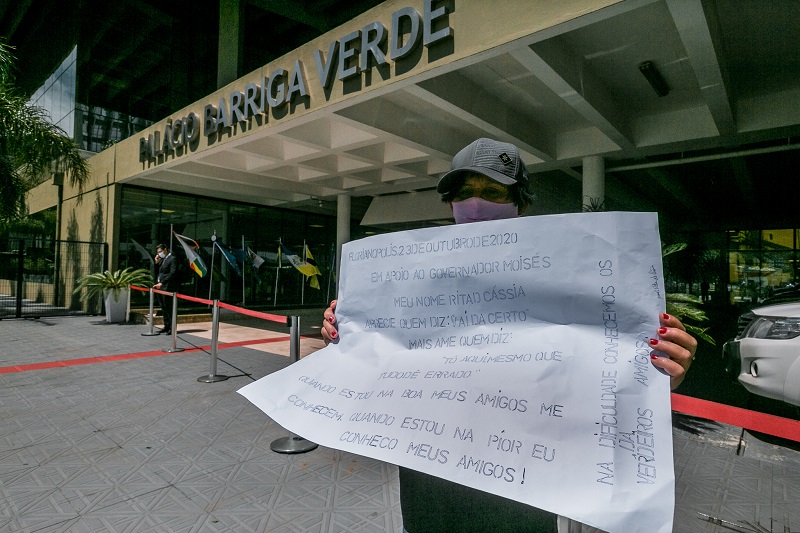 PALÁCIO BARRIGA VERDE
FLURIANOPOLIS, 23 DE OUTUBRO DE 2020
EM APOIO AO GOVERNADOR MOISÉS
MEU NOME RITA D CÁSSIA
QUEM DIZ: DAÍ DA CERTO
MAIS AME QUEM DIZ:
"TO AQUI MESMO QUE
TUDO DÊ ERRADO"
QUANDO ESTOU NA BOA MEUS AMIGOS ME
CONHECEM. QUANDO ESTOU NA PÍOR EU
CONHEÇO MEUS AMIGOS!
NA DIFICULDADE CONHECEMOS OS
VERDEIROS AMIGOS